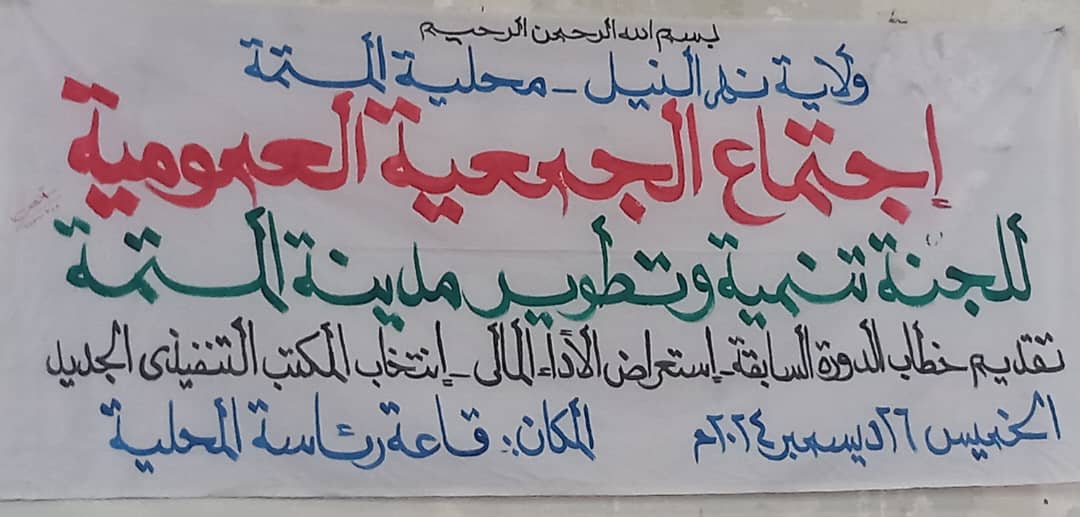 بسم الله الرحمن الرحيم
ولاية نهر النيل - محلية المتمة
إجتماع الجمعية العمومية
للجنة تنمية وتطوير مدينة المتمة
تقديم خطاب الدورة السابقة - إستعراض الأداء المالى - إنتخاب المكتب التنفيذى الجديد
الخميس ٢٦ ديسمبر ٢٠٢٤م المكان: قاعة رئاسة المحلية